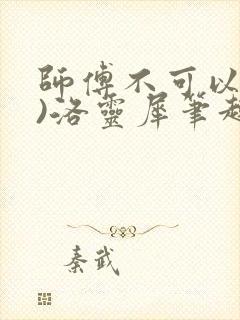 師傅不可以
)洛靈犀筆趣
秦武